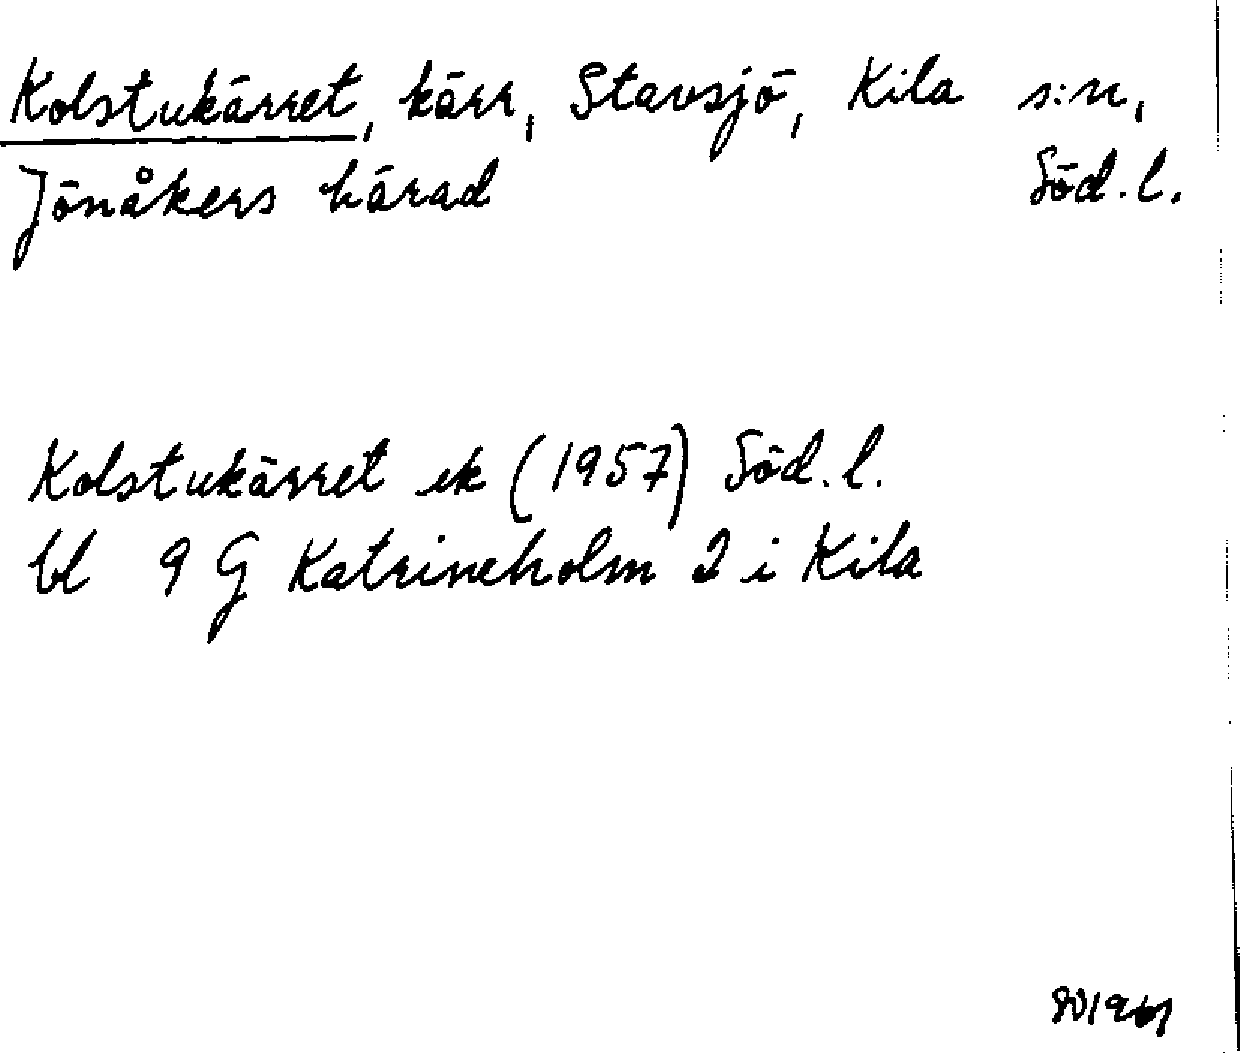 Kolstukärret, kärr, Stavsjö, Kila s:n,
Jönåkers härad Söd. l.
Kolstukärret ek (1957) Söd. l.
bl 9 G Katrineholm 2 i Kila